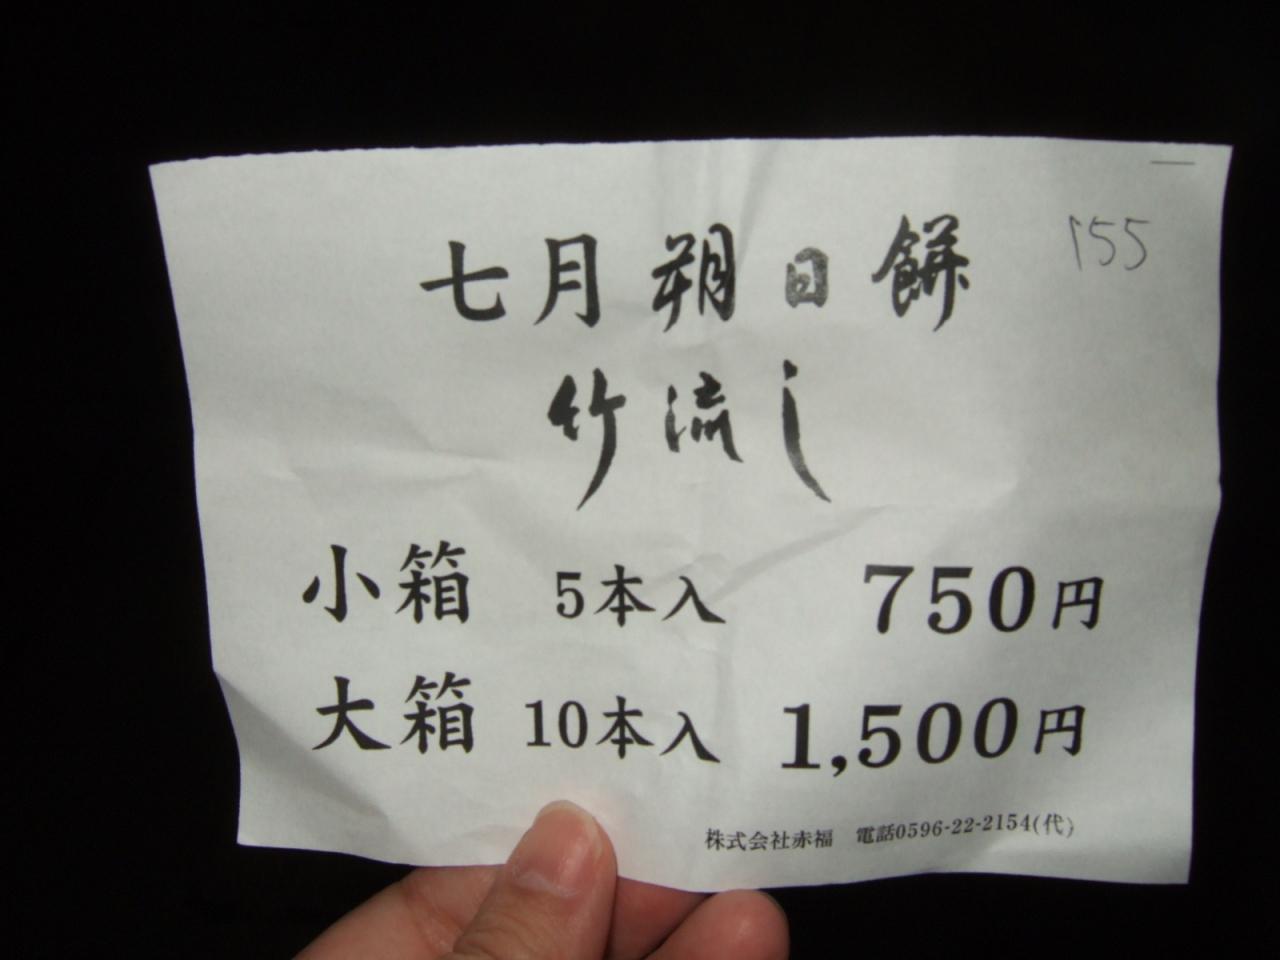 155
七月朔日餅
竹流し
小箱 5本入 750円
大箱 10本入 1,500円
株式会社赤福 電話0596-22-2154(代)